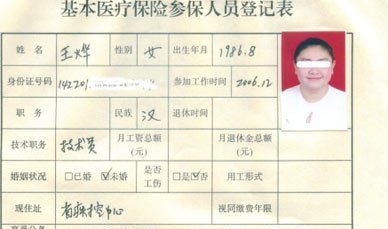 基本医疗保险参保人员登记表
姓名 王烨 性别 女 出生年月 1986.8
身份证号码 142201 参加工作时间 2006.12
职务 民族 汉 退休时间
技术职务 技术员 月工资总额(元) 月退休金总额(元)
婚姻状况 □已婚 ☑未婚 是否工伤 □是☑否 用工形式
现住址 省疾控中心 视同缴费年限